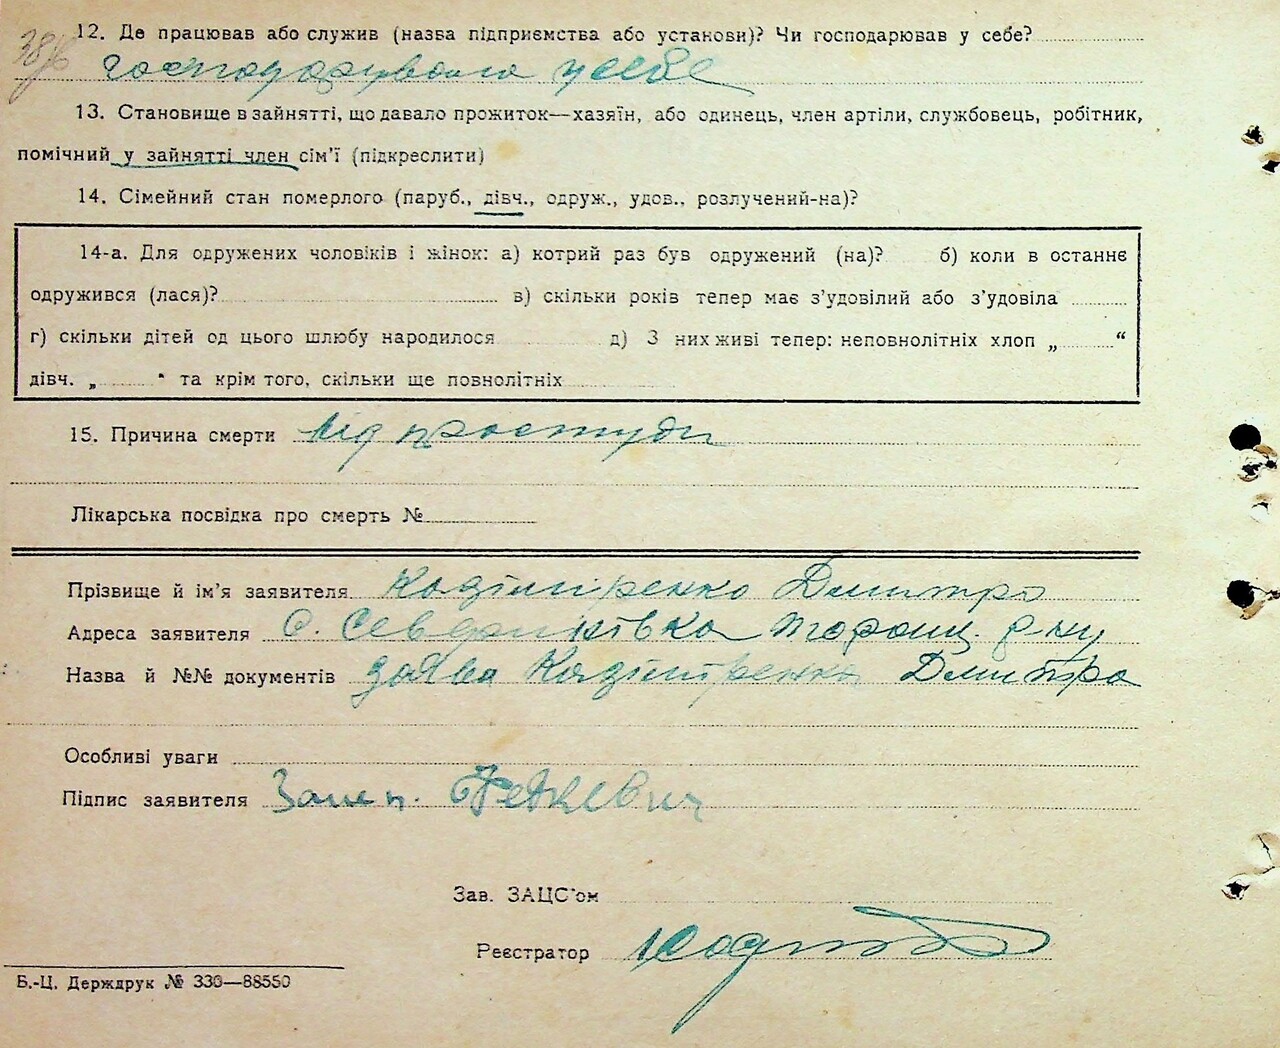 12. Де працював або служив (назва підприємства або установи)? Чи господарював у себе?
господарювала у себе
13. Становище в зайнятті, що давало прожиток—хазяїн, або одинець, член артілі, службовець, робітник,
помічний у зайнятті член сім'ї (підкреслити)
14. Сімейний стан померлого (паруб., дівч., одруж., удов., розлучений-на)?
14-а. Для одружених чоловіків і жінок: а) котрий раз був одружений (на)? б) коли в останнє
одружився (лася)? в) скільки років тепер має з'удовілий або з'удовіла
г) скільки дітей од цього шлюбу народилося д) З них живі тепер: неповнолітніх хлоп „ “
дівч. „ “ та крім того, скільки ще повнолітніх
15. Причина смерти від простуди
Лікарська посвідка про смерть №
Прізвище й ім'я заявителя Казімиренко Дмитро
Адреса заявителя С. р-ну
Назва й №№ документів заява Казімиренка Дмитра
Особливі уваги
Підпис заявителя
Зав. ЗАЦС'ом
Реєстратор
Б.-Ц. Держдрук № 330—88550